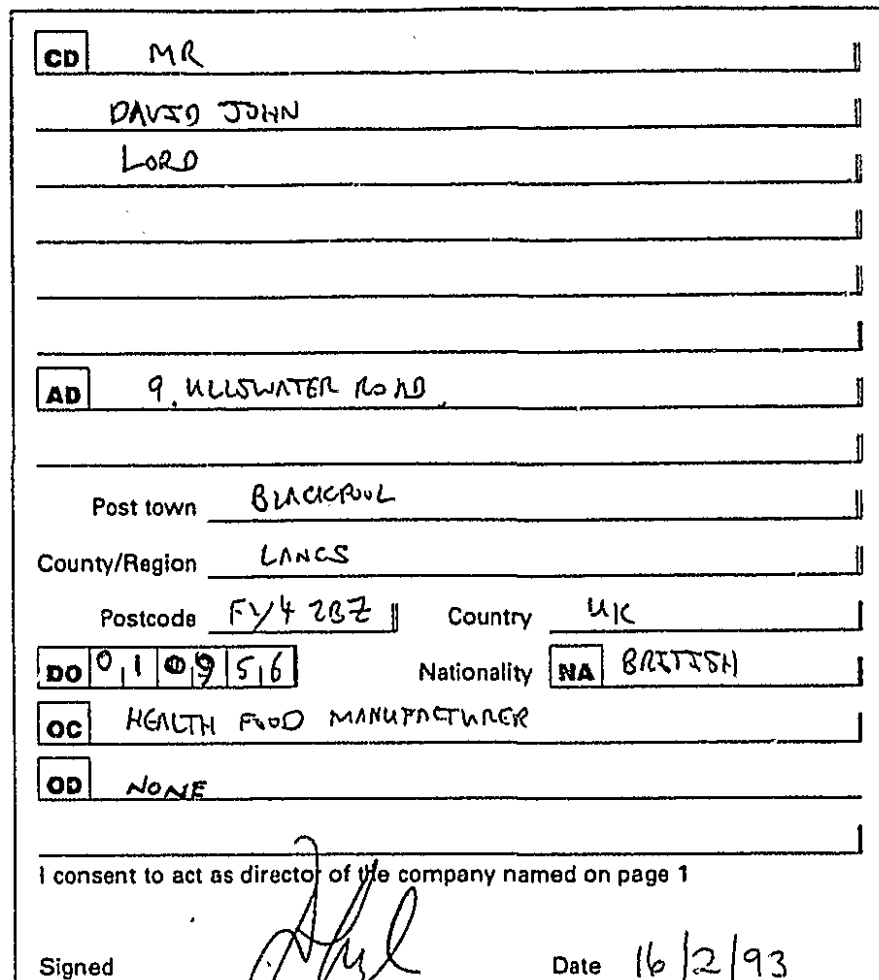 CD MR
DAVID JOHN
LORD
AD 9, ULLSWATER ROAD,
Post town BLACKPOOL
County/Region LANCS
Postcode FY4 2BZ Country UK
DO 0 1 0 9 5 6 Nationality NA BRITISH
OC HEALTH FOOD MANUFACTURER
OD NONE
I consent to act as director of the company named on page 1
Signed Date 16/2/93